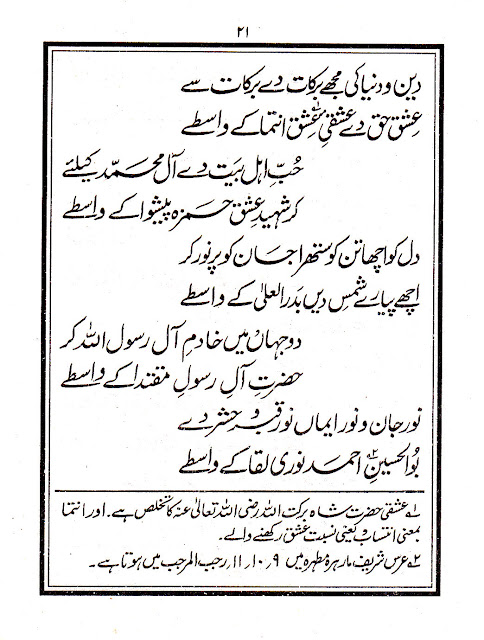 ۲۱
دین و دنیا کی مجھے برکات دے برکات سے
عشقِ حق دے عشقیِ عشق انتما کے واسطے
حُبِّ اہل بیت دے آل محمّد کیلئے
کر شہیدِ عشق حمزہ پیشوا کے واسطے
دل کو اچھا تن کو ستھرا جان کو پر نور کر
اچھے پیارے شمس دیں بدر العلیٰ کے واسطے
دو جہاں میں خادمِ آل رسول اللہ کر
حضرتِ آلِ رسولِ مقتدا کے واسطے
نور جان و نور ایماں نور قبر و حشر دے
بوالحسینِ احمد نوری لقا کے واسطے
۱؎ عشقی حضرت شاہ برکت اللہ رضی اللہ تعالیٰ عنہ کا تخلص ہے۔ اور انتما
بمعنی انتساب یعنی نسبت عشق رکھنے والے۔
۲؎ عرس شریف مارہرہ مطہرہ میں ۹، ۱۰، ۱۱، رجب المرجب میں ہوتا ہے۔